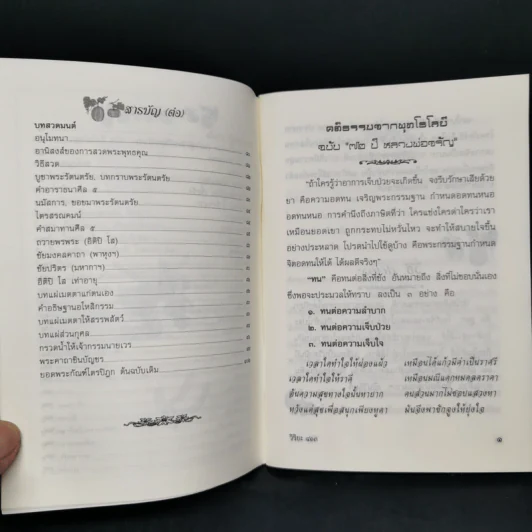 สารบัญ (ต่อ)
บทสวดมนต์
อนุโมทนา
อานิสงส์ของการสวดพระพุทธคุณ
วิธีสวด
บูชาพระรัตนตรัย, บทกราบพระรัตนตรัย
คำอาราธนาศีล ๕
นมัสการ, ขอขมาพระรัตนตรัย
ไตรสรณคมน์
คำสมาทานศีล ๕
ถวายพรพระ (อิติปิ โส)
ชัยมงคลคาถา (พาหุงฯ)
ชัยปริตร (มหากาฯ)
อิติปิ โส เท่าอายุ
บทแผ่เมตตาแก่ตนเอง
คำอธิษฐานอโหสิกรรม
บทแผ่เมตตาให้สรรพสัตว์
บทแผ่ส่วนกุศล
กรวดน้ำให้เจ้ากรรมนายเวร
พระคาถาชินบัญชร
ยอดพระกัณฑ์ไตรปิฎก ต้นฉบับเดิม
คติธรรมจากพุทโธโลยี
ฉบับ "๗๒ ปี หลวงพ่อจรัญ"
"ถ้าใครรู้ว่าอาการเจ็บป่วยจะเกิดขึ้น จงรีบรักษาเสียด้วย
ยา คือความอดทน เจริญพระกรรมฐาน กำหนดอดทนหนอ
อดทนหนอ การคำนึงถึงภาษิตที่ว่า ใครแช่งใครด่าใครว่าเรา
เหมือนยอดเขา ถูกกระทบไม่หวั่นไหว จะทำให้สบายใจขึ้น
อย่างประหลาด โปรดนำไปใช้ดูบ้าง คือพระกรรมฐานกำหนด
จิตอดทนให้ได้ ได้ผลดีจริงๆ"
"ทน" คือทนต่อสิ่งที่ขัง อันหมายถึง สิ่งที่ไม่ชอบนั่นเอง
ซึ่งพอจะประมวลให้ทราบ ลงเป็น ๓ อย่าง คือ
๑. ทนต่อความลำบาก
๒. ทนต่อความเจ็บป่วย
๓. ทนต่อความเจ็บใจ
เวลาใดทำใจให้ผ่องแผ้ว เหมือนได้แก้วมีค่าเป็นราศรี
เวลาใดทำใจให้ราคี เหมือนมณีแตกหมดลดราคา
อันความสุขทางใจนั้นหายาก คนส่วนมากไม่ชอบแสวงหา
หวังแต่สุขเพื่อสนุกเพียงหูตา มันจึงพาชักจูงให้ยุ่งใจ
วิริยะ ๔๑๓ ๑